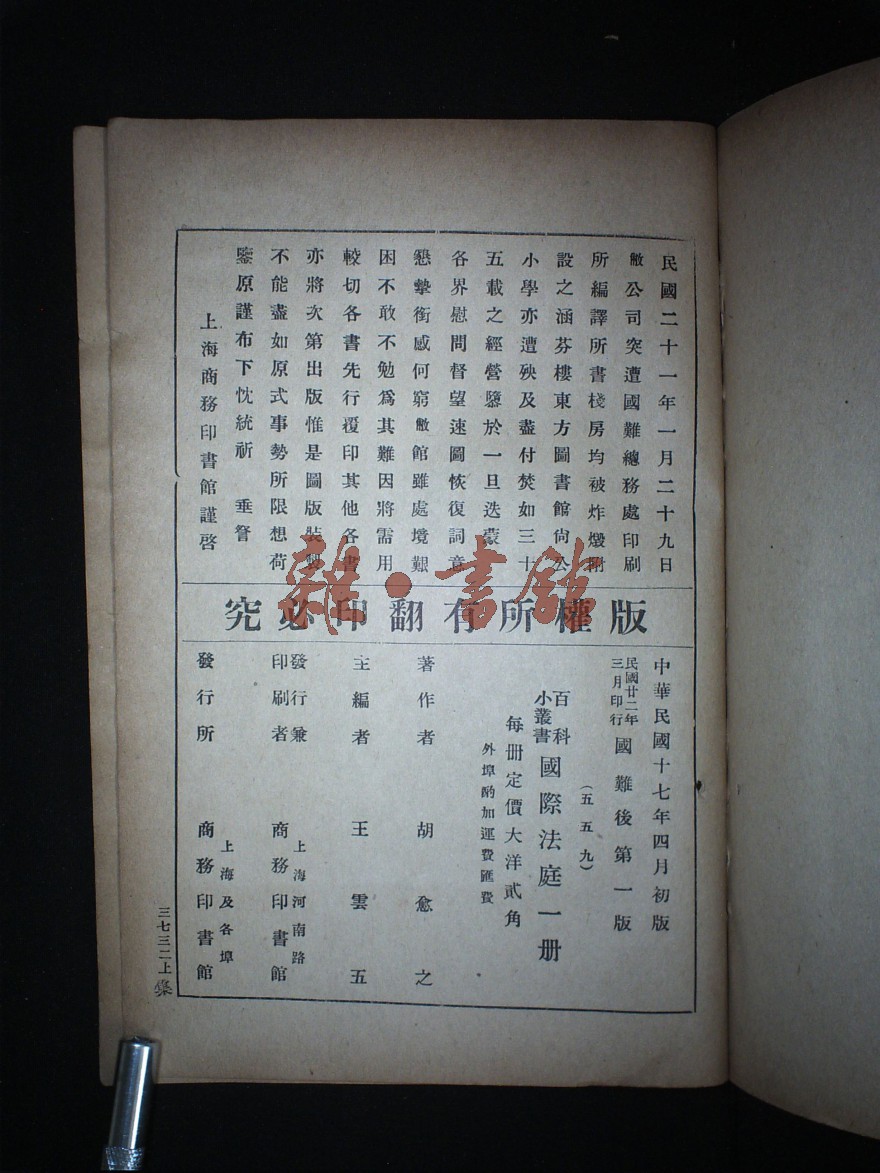 民國二十一年一月二十九日
敝公司突遭國難總務處印刷
所編譯所書棧房均被炸燬附
設之涵芬樓東方圖書館尙公
小學亦遭殃及盡付焚如三十
五載之經營隳於一旦迭蒙
各界慰問督望速圖恢復詞意
懇摯銜感何窮敝館雖處境艱
困不敢不勉爲其難因將需用
較切各書先行覆印其他各書
亦將次第出版惟是圖版裝製
不能盡如原式事勢所限想荷
鑒原謹布下忱統祈 垂詧
上海商務印書館謹啓
版權所有翻印必究
中華民國十七年四月初版
民國廿二年三月印行 國難後第一版
(五五九)
百科小叢書 國際法庭一册
每册定價大洋貳角
外埠酌加運費匯費
著作者 胡愈之
主編者 王雲五
發行兼印刷者 上海河南路 商務印書館
發行所 上海及各埠 商務印書館
三七三二上
雜·書館